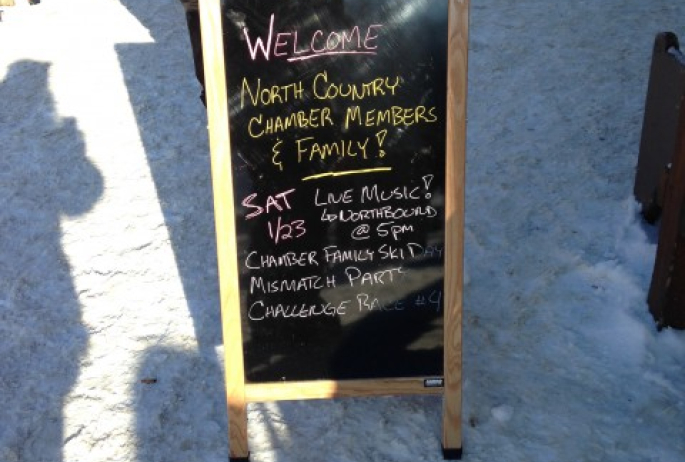 WELCOME
NORTH COUNTRY
CHAMBER MEMBERS
& FAMILY!
SAT 1/23
LIVE MUSIC!
↳ NORTHBOUND
@ 5PM
CHAMBER FAMILY SKI DAY
MISMATCH PARTY
CHALLENGE RACE #4